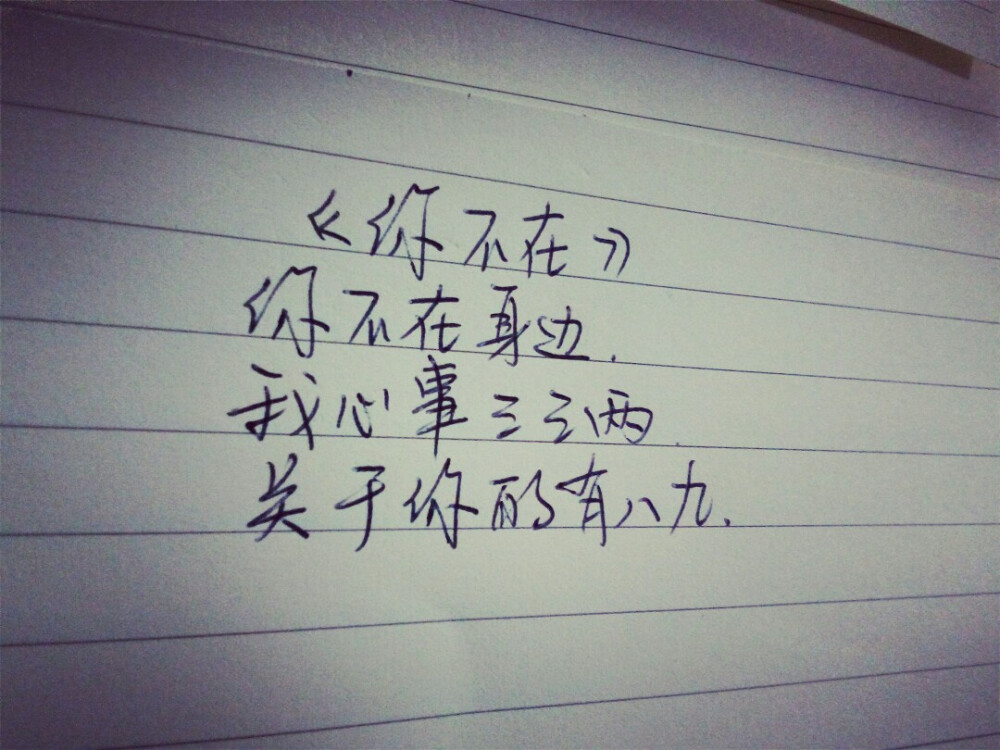 《你不在》
你不在身边.
我心事三三两两.
关于你的有八九.